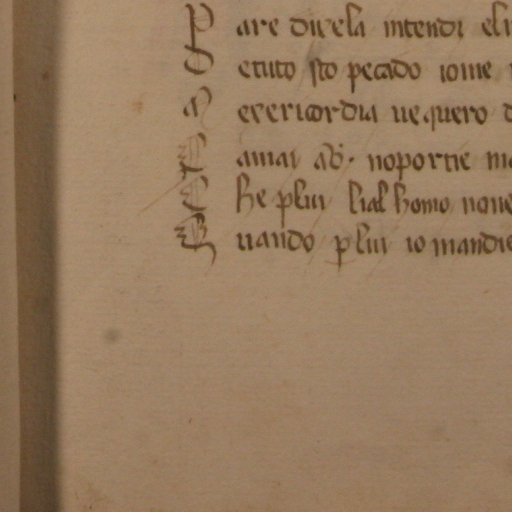 P are direla intendi eli
D etuto sto pecado iome
M exericordia uequero d
amai ab. noportie ma
C he plui lial homo noue
Q uando plui io mandie